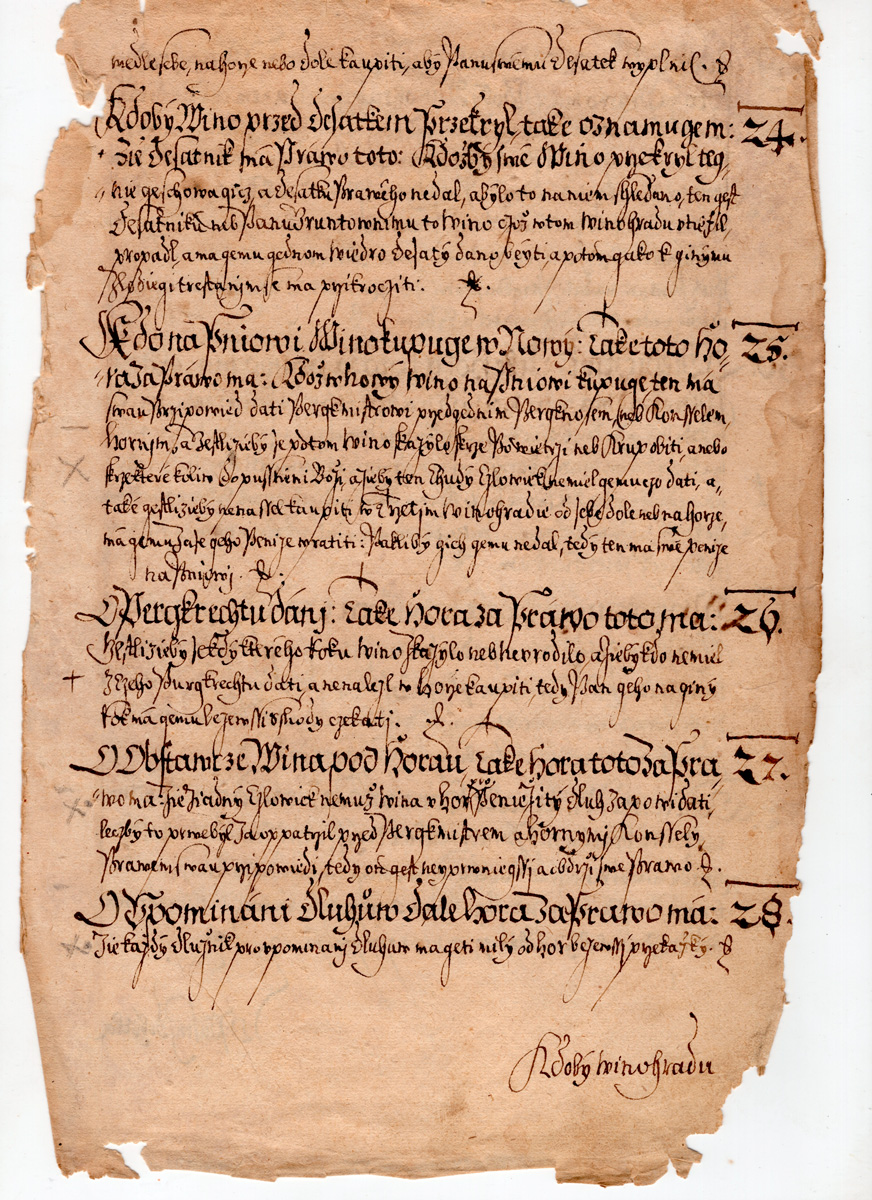 wedle sebe, na horze nebo dole kaupiti, aby Panu swému desatek wyplnil.
Kdoby Wino przed desatkem Przekryl, take oznamugem: 24.
Zie desatnik má Práwo toto: Kdožby swé Wino przekryl teg-
nie geschowagicz, a desatku Prawého nedal, a bylo to na niem shledano, ten gest
desatniku neb Panu Gruntownimu to wino czož w tom winohradu vtiežil,
propadl, a ma gemu gednom wiedro desaty dano beyti, a potom gako k ginymu
Zlodiegi trestanim se ma przikrocziti.
Kdo na Pniowi Wino kupuge w Nowy: Take toto ho- 25.
ra za Práwo ma: Kdož w howy wino na Pniowi kupuge ten má
swau Przipowied dati Pergkmistrowi przed gednim Pergknosem, neb Konsselem
hornim, a Gestližieby se potom wino skazylo skrze Powietrzi neb Krupobiti, anebo
skrz kteve koliw dopusstieni Boži, a žieby ten Chudy Czlowiek nemiel gemu czo dati, a
také gestližieby nenassel kaupiti w Trzetim winohradie od sebe dole neb na horze,
má gemu zase geho Penize wratiti: Pakliby gich gemu nedal, tedy ten ma swé penize
na Pniowi.
O Pergkrechtu dáni: Take hora za Práwo toto ma: 26.
Gestližieby se kdy kterého Roku wino skazylo neb nevrodilo, a žieby kdo nemiel
z czeho Purgkrechtu dati, a nenalezl w horze kaupiti, tedy Pan geho na giny
Rok má gemu beze wssi sskody czekati.
O Obstawcze Wina pod horau, Take hora toto za Prá- 27.
wo ma: Zie žiadny Czlowiek nemuž wina v hor pro Peniežity dluh zapowidati
leczby to prwé byl Zaopatrzil przed Pergkmistrem a hornymi Konssely
Prawem swau przipowiedi, tedy on gest neyprwniegssi a obdrži swé Prawo.
O Vpominani dluhůw dale hora za Prawo má: 28.
Zie každy dlužnik pro vpominani dluhuw ma geti mily od hor beze wssi przekažky.
Kdoby winohradu